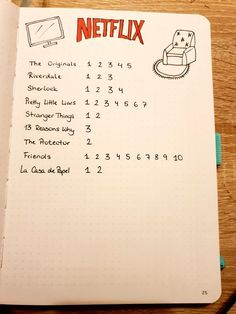 NETFLIX
The Originals 1 2 3 4 5
Riverdale 1 2 3
Sherlock 1 2 3 4
Pretty Little Liars 1 2 3 4 5 6 7
Stranger Things 1 2
13 Reasons Why 3
The Protector 2
Friends 1 2 3 4 5 6 7 8 9 10
La Casa de Papel 1 2
25